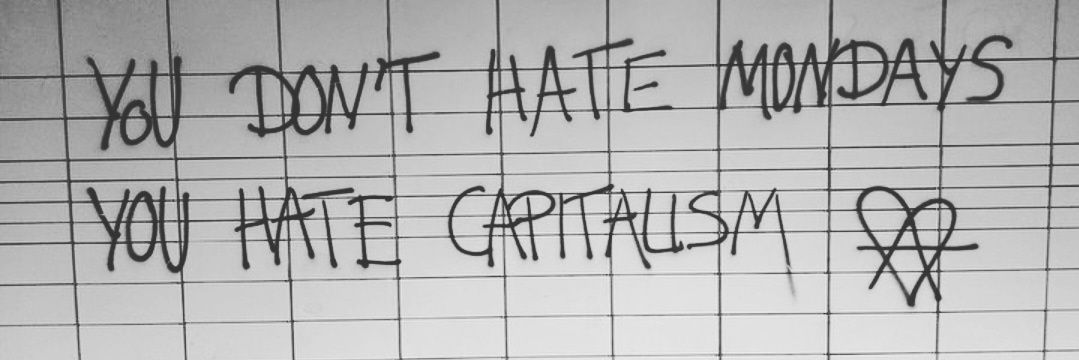 YOU DON'T HATE MONDAYS
YOU HATE CAPITALISM